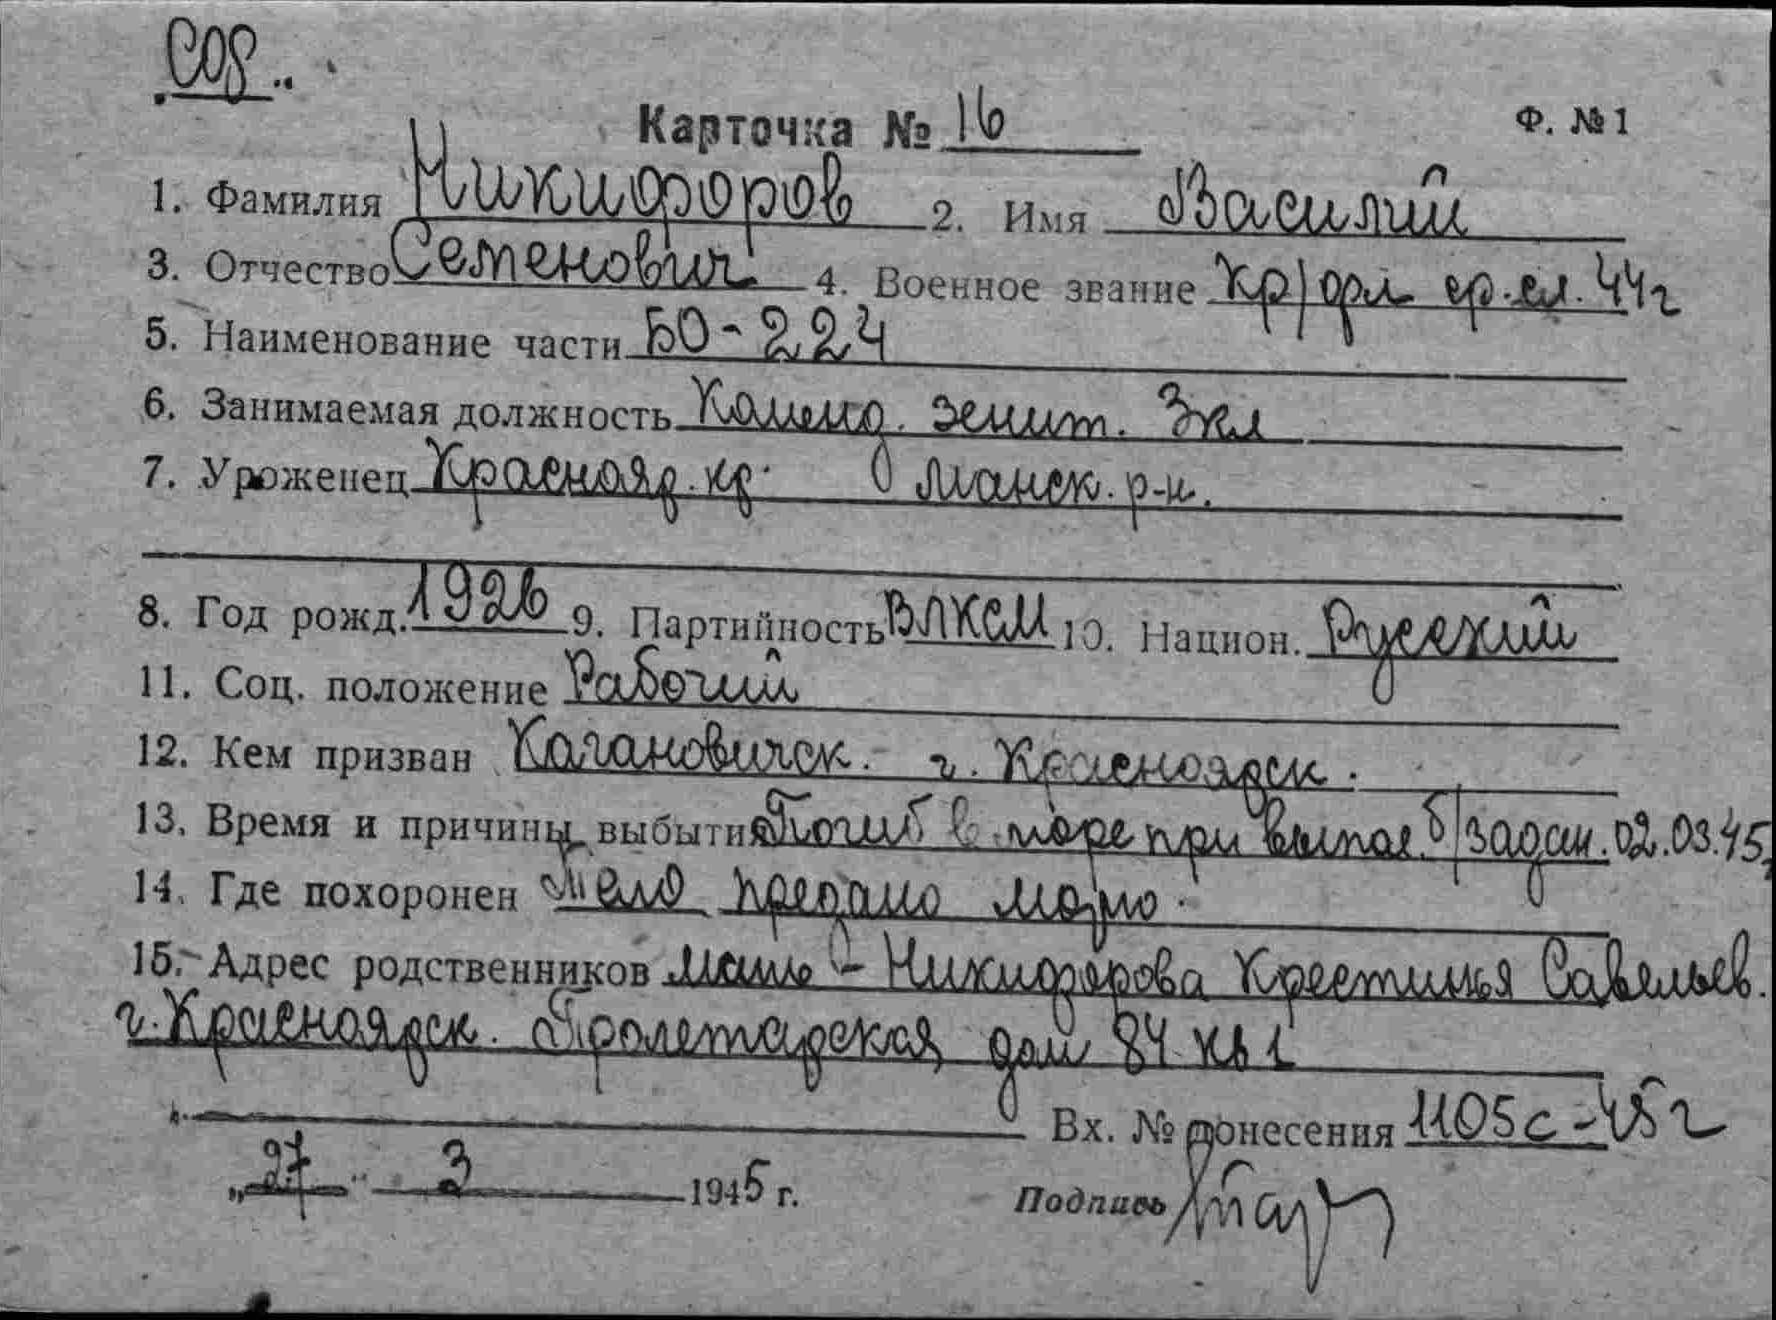 СОФ
Карточка № 16 Ф. № 1
1. Фамилия Никифоров 2. Имя Василий
3. Отчество Семенович 4. Военное звание Кр/фл ср.сл. 44г
5. Наименование части БО-224
6. Занимаемая должность Команд. зенит. 3кл
7. Уроженец Краснояр. кр. Манск. р-н.
8. Год рожд. 1926 9. Партийность ВЛКСМ 10. Национ. Русский
11. Соц. положение Рабочий
12. Кем призван Кагановичск. г. Красноярск.
13. Время и причины выбытия Погиб в море при выпол. б/задан. 02.03.45
14. Где похоронен Тело предано морю.
15. Адрес родственников мать - Никифорова Крестинья Савельев.
г. Красноярск. Пролетарская дом 84 кв 1
Вх. № донесения 1105с-45г
„27" 3 1945 г. Подпись